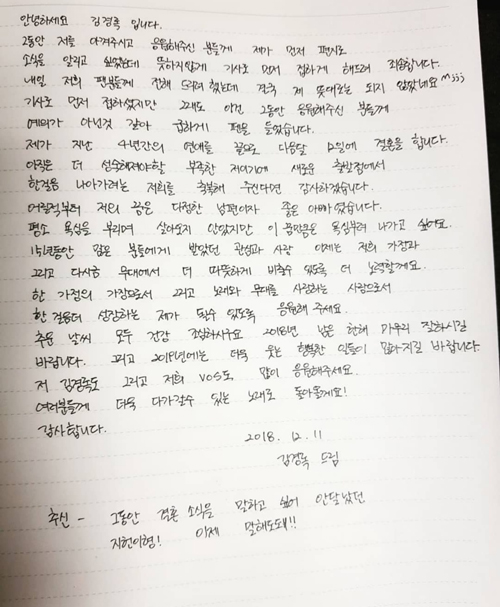 안녕하세요 김경록 입니다.
그동안 저를 아껴주시고 응원해주신 분들께 제가 먼저 편지로
소식을 알리고 싶었는데 뜻하지않게 기사로 먼저 접하게 해드려 죄송합니다.
내일 저희 팬분들께 전해 드리려 했는데 결국 제 뜻대로는 되지 않았네요
기사로 먼저 접하셨지만 그래도 이건 그동안 응원해주신 분들께
예의가 아닌것 같아 급하게 펜을 들었습니다.
제가 지난 4년간의 연애를 끝으로 다음달 12일에 결혼을 합니다.
아직은 더 성숙해져야할 부족한 저이기에 새로운 출발점에서
한걸음 나아가려는 저희를 축복해 주신다면 감사하겠습니다.
어릴적부터 저의 꿈은 다정한 남편이자 좋은 아빠였습니다.
평소 욕심을 부리며 살아오지 않았지만 이 꿈만큼은 욕심부려 나가고 싶어요.
15년동안 많은 분들에게 받았던 관심과 사랑 이제는 저의 가정과
그리고 다시금 무대에서 더 따뜻하게 비출수 있도록 더 노력할게요.
한 가정의 가장으로서 그리고 노래와 무대를 사랑하는 사람으로서
한 걸음더 성장하는 제가 될수 있도록 응원해 주세요.
추운 날씨 모두 건강 조심하시구요 2018년 남은 한해 마무리 잘하시길
바랍니다. 그리고 2019년에는 더욱 웃는 행복한 일들이 많아지길 바랍니다
저 김경록도 그리고 저희 VOS도 많이 응원해주세요.
여러분들께 더욱 다가갈수 있는 노래로 돌아올게요!
감사합니다.
2018. 12. 11
김경록 드림
추신 - 그동안 결혼 소식을 말하고 싶어 안달났던
지헌이형! 이제 말해도돼!!